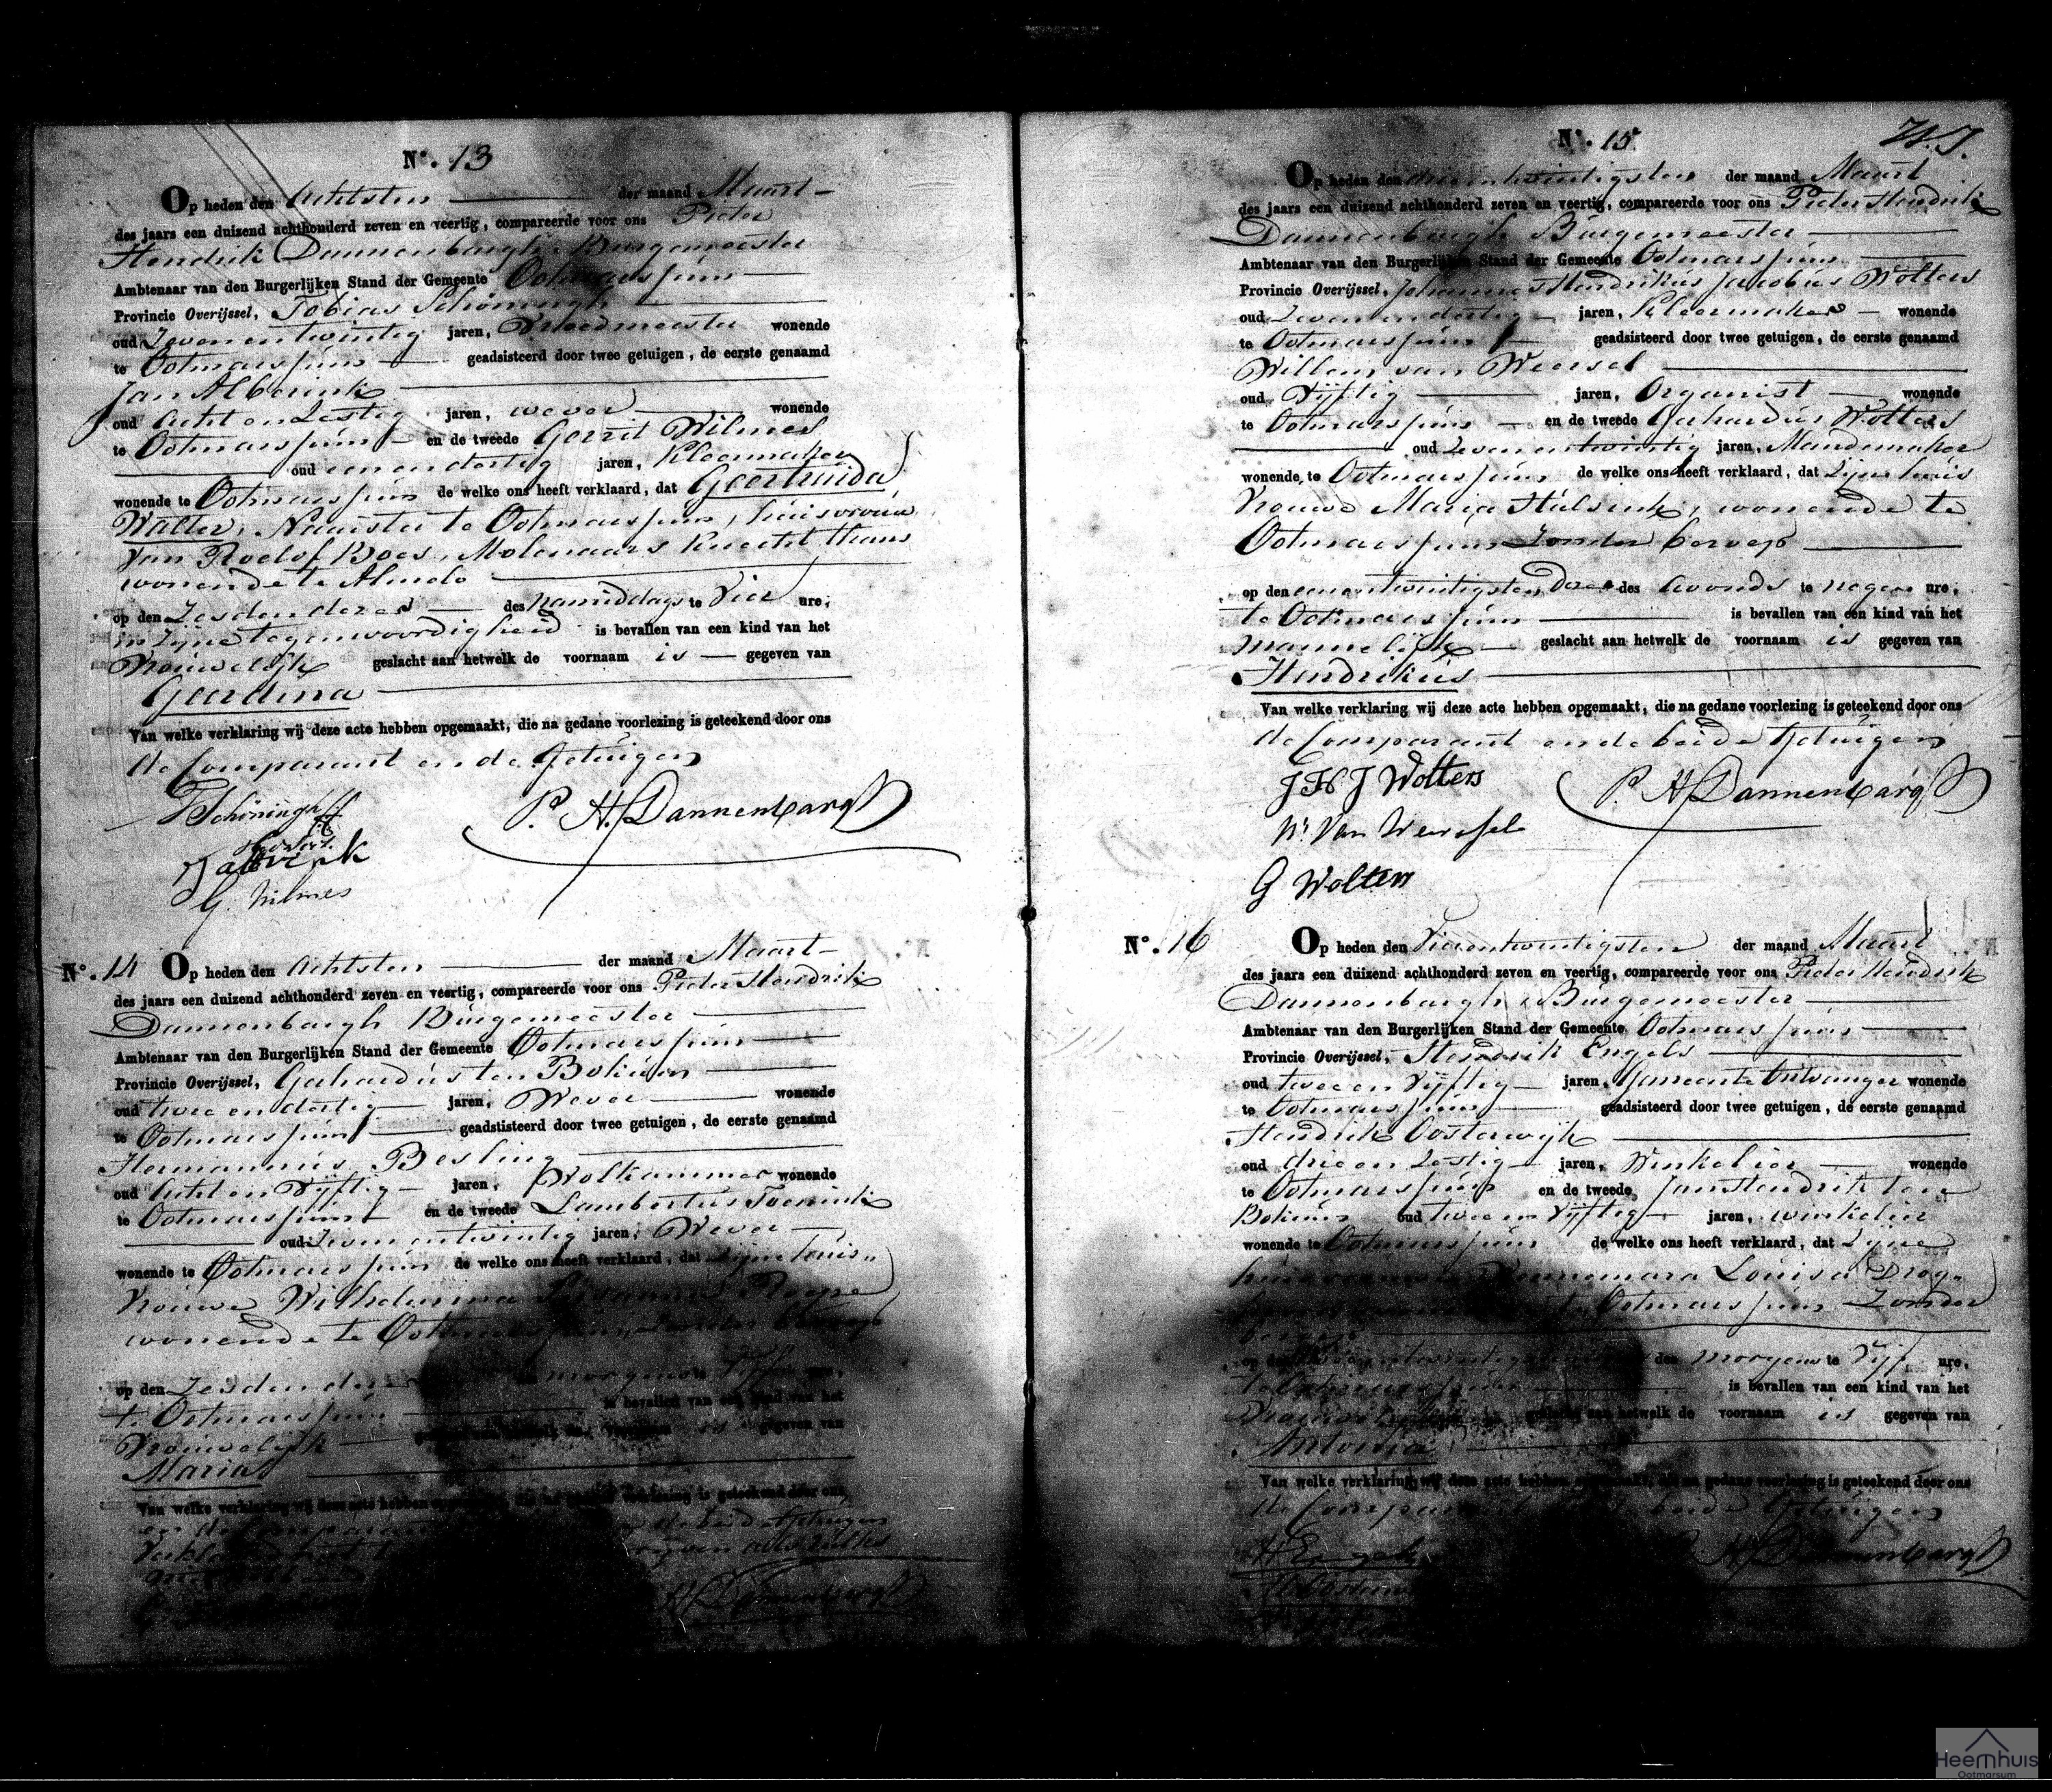 N°. 13
Op heden den Achtsten der maand Maart
des jaars een duizend achthonderd zeven en veertig, compareerde voor ons Pieter
Hendrik Dannenbargh Burgemeester
Ambtenaar van den Burgerlijken Stand der Gemeente Ootmarssum
Provincie Overijssel, Tobias Schöningh
oud Zevenentwintig jaren, Vroedmeester wonende
te Ootmarssum geadsisteerd door twee getuigen, de eerste genaamd
Jan Alberink
oud Acht en Zestig jaren, wever wonende
te Ootmarssum en de tweede Gerrit Wilmes
oud eenendertig jaren, Kleermaker
wonende te Ootmarssum de welke ons heeft verklaard, dat Geertruida
Walter, Naaister te Ootmarssum, huisvrouw
van Roelof Boes, Molenaars Knecht thans
wonende te Almelo
op den Zesden dezer des namiddags te Vier ure,
in zijne tegenwoordigheid is bevallen van een kind van het
Vrouwelijk geslacht aan hetwelk de voornaam is gegeven van
Geerdina
Van welke verklaring wij deze acte hebben opgemaakt, die na gedane voorlezing is geteekend door ons
de Comparant en de Getuigen
T Schöningh
P. H. Dannenbargh
J alberink
G. Wilmes
N°. 14 Op heden den Achtsten der maand Maart
des jaars een duizend achthonderd zeven en veertig, compareerde voor ons Pieter Hendrik
Dannenbargh Burgemeester
Ambtenaar van den Burgerlijken Stand der Gemeente Ootmarssum
Provincie Overijssel, Gerhardus ten Bokum
oud twee en dertig jaren, Wever wonende
te Ootmarssum geadsisteerd door twee getuigen, de eerste genaamd
Hermannus Besling
oud Acht en Vijftig jaren, Wolkammer wonende
te Ootmarssum en de tweede Lambertus
oud Zeven entwintig jaren, Wever
wonende te Ootmarssum de welke ons heeft verklaard, dat zijne huis
vrouwe Wilhelmina
wonende te Ootmarssum, zonder beroep
op den Zesden dezer morgens te Vijf ure,
te Ootmarssum is bevallen van een kind van het
Vrouwelijk geslacht aan hetwelk de voornaam is gegeven van
Maria
Van welke verklaring wij deze acte hebben opgemaakt, die na gedane voorlezing is geteekend door ons
N°. 15
Op heden den drieentwintigsten der maand Maart
des jaars een duizend achthonderd zeven en veertig, compareerde voor ons Pieter Hendrik
Dannenbargh Burgemeester
Ambtenaar van den Burgerlijken Stand der Gemeente Ootmarssum
Provincie Overijssel, Johannes Hendrikus Jacobus Wolters
oud Zevenendertig jaren, Kleermaker wonende
te Ootmarssum geadsisteerd door twee getuigen, de eerste genaamd
Willem van Weersel
oud Vijftig jaren, Organist wonende
te Ootmarssum en de tweede Gerhardus Wolters
oud Zevenentwintig jaren, Mandemaker
wonende te Ootmarssum de welke ons heeft verklaard, dat Zijne huis
vrouwe Maria Hulsink, wonende te
Ootmarssum zonder beroep
op den eenentwintigsten Dezer des Avonds te negen ure,
te Ootmarssum is bevallen van een kind van het
mannelijk geslacht aan hetwelk de voornaam is gegeven van
Hendrikus
Van welke verklaring wij deze acte hebben opgemaakt, die na gedane voorlezing is geteekend door ons
de Comparant en de beide Getuigen
J H J Wolters
P. H. Dannenbargh
G Wolters
N°. 16 Op heden den Vierentwintigsten der maand Maart
des jaars een duizend achthonderd zeven en veertig, compareerde voor ons Pieter Hendrik
Dannenbargh Burgemeester
Ambtenaar van den Burgerlijken Stand der Gemeente Ootmarssum
Provincie Overijssel, Hendrik Engels
oud twee en Vijftig jaren, Gemeente Ontvanger wonende
te Ootmarssum geadsisteerd door twee getuigen, de eerste genaamd
Hendrik Oosterwijk
oud drie en Zestig jaren, Winkelier wonende
te Ootmarssum en de tweede Jan Hendrik ten
Bokum oud twee en Vijftig jaren, winkelier
wonende te Ootmarssum de welke ons heeft verklaard, dat Zijne
huisvrouwe Louisa
te Ootmarssum zonder
beroep
op den des morgens te Vijf ure,
te Ootmarssum is bevallen van een kind van het
Vrouwelijk geslacht aan hetwelk de voornaam is gegeven van
Antonia
Van welke verklaring wij deze acte hebben opgemaakt, die na gedane voorlezing is geteekend door ons
de Comparant beide Getuigen
H Engels
P. H. Dannenbargh
Heemhuis
Ootmarsum